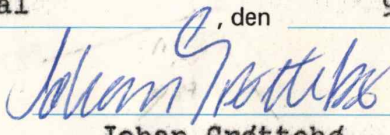 al , den 9
Johan Grøttebø
Johan Grøttebø